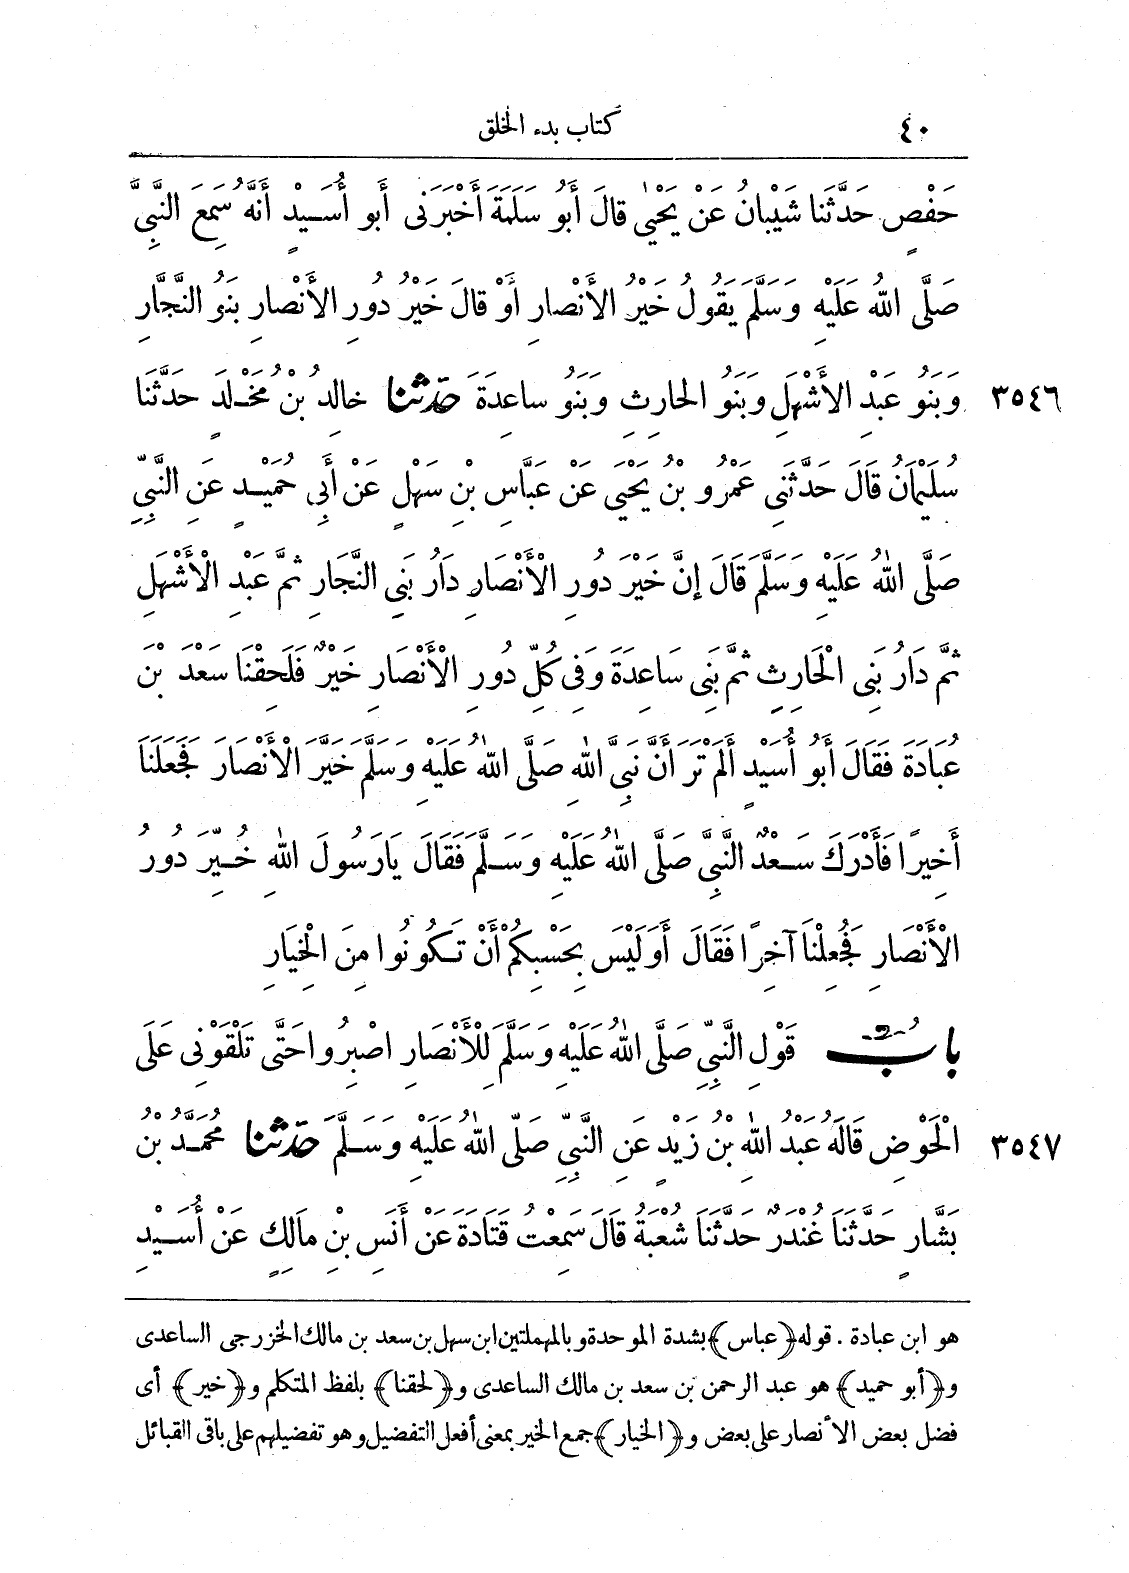 ٤٠ كتاب بدء الخلق
حَفْصٍ حَدَّثَنا شَيْبانُ عَنْ يَحْيٰى قالَ أَبُو سَلَمَةَ أَخْبَرَنِى أَبو أُسَيْدٍ أَنَّهُ سَمِعَ النَّبِيَّ
صَلَّى اللهُ عَلَيْهِ وَسَلَّمَ يَقُولُ خَيْرُ الأَنْصارِ أَوْ قالَ خَيْرُ دُورِ الأَنْصارِ بَنُو النَّجَّارِ
٣٥٤٦ وَبَنُو عَبْدِ الأَشْهَلِ وَبَنُو الحارِثِ وَبَنُو ساعِدَةَ حَدَّثنا خالِدُ بْنُ مَخْلَدٍ حَدَّثَنا
سُلَيْمَانُ قَالَ حَدَّثَنِى عَمْرُو بْنُ يَحْيَى عَنْ عَبَّاسِ بْنِ سَهْلٍ عَنْ أَبِى حُمَيْدٍ عَنِ النَّبِيِّ
صَلَّى اللهُ عَلَيْهِ وَسَلَّمَ قَالَ إِنَّ خَيْرَ دُورِ الْأَنْصَارِ دَارُ بَنِى النَّجَارِ ثُمَّ عَبْدِ الْأَشْهَلِ
ثُمَّ دَارُ بَنِى الْحَارِثِ ثُمَّ بَنِى سَاعِدَةَ وَفِى كُلِّ دُورِ الْأَنْصَارِ خَيْرٌ فَلَحِقْنَا سَعْدَ بْنَ
عُبَادَةَ فَقَالَ أَبُو أُسَيْدٍ أَلَمْ تَرَ أَنَّ نَبِىَّ اللهِ صَلَّى اللهُ عَلَيْهِ وَسَلَّمَ خَيَّرَ الْأَنْصَارَ فَجَعَلَنَا
أَخِيرًا فَأَدْرَكَ سَعْدٌ النَّبِىَّ صَلَّى اللهُ عَلَيْهِ وَسَلَّمَ فَقَالَ يَارَسُولَ اللهِ خُيِّرَ دُورُ
الْأَنْصَارِ فَجُعِلْنَا آخِرًا فَقَالَ أَوَلَيْسَ بِحَسْبِكُمْ أَنْ تَكُونُوا مِنَ الْخِيَارِ
بابُ قَوْلِ النَّبِيِّ صَلَّى اللهُ عَلَيْهِ وَسَلَّمَ لِلْأَنْصَارِ اصْبِرُوا حَتَّى تَلْقَوْنِى عَلَى
٣٥٤٧ الْحَوْضِ قَالَهُ عَبْدُ اللهِ بْنُ زَيْدٍ عَنِ النَّبِيِّ صَلَّى اللهُ عَلَيْهِ وَسَلَّمَ حَدَّثنا مُحَمَّدُ بْنُ
بَشَّارٍ حَدَّثَنَا غُنْدَرٌ حَدَّثَنَا شُعْبَةُ قَالَ سَمِعْتُ قَتَادَةَ عَنْ أَنَسِ بْنِ مَالِكٍ عَنْ أُسَيْدِ
هو ابن عبادة . قوله ﴿عباس﴾ بشدة الموحدة وبالمهملتين ابن سهل بن سعد بن مالك الخزرجى الساعدى
و﴿أبو حميد﴾ هو عبد الرحمن بن سعد بن مالك الساعدى و﴿لحقنا﴾ بلفظ المتكلم و﴿خير﴾ أى
فضل بعض الأنصار على بعض و﴿الخيار﴾ جمع الخير بمعنى أفعل التفضيل وهو تفضيلهم على باقى القبائل